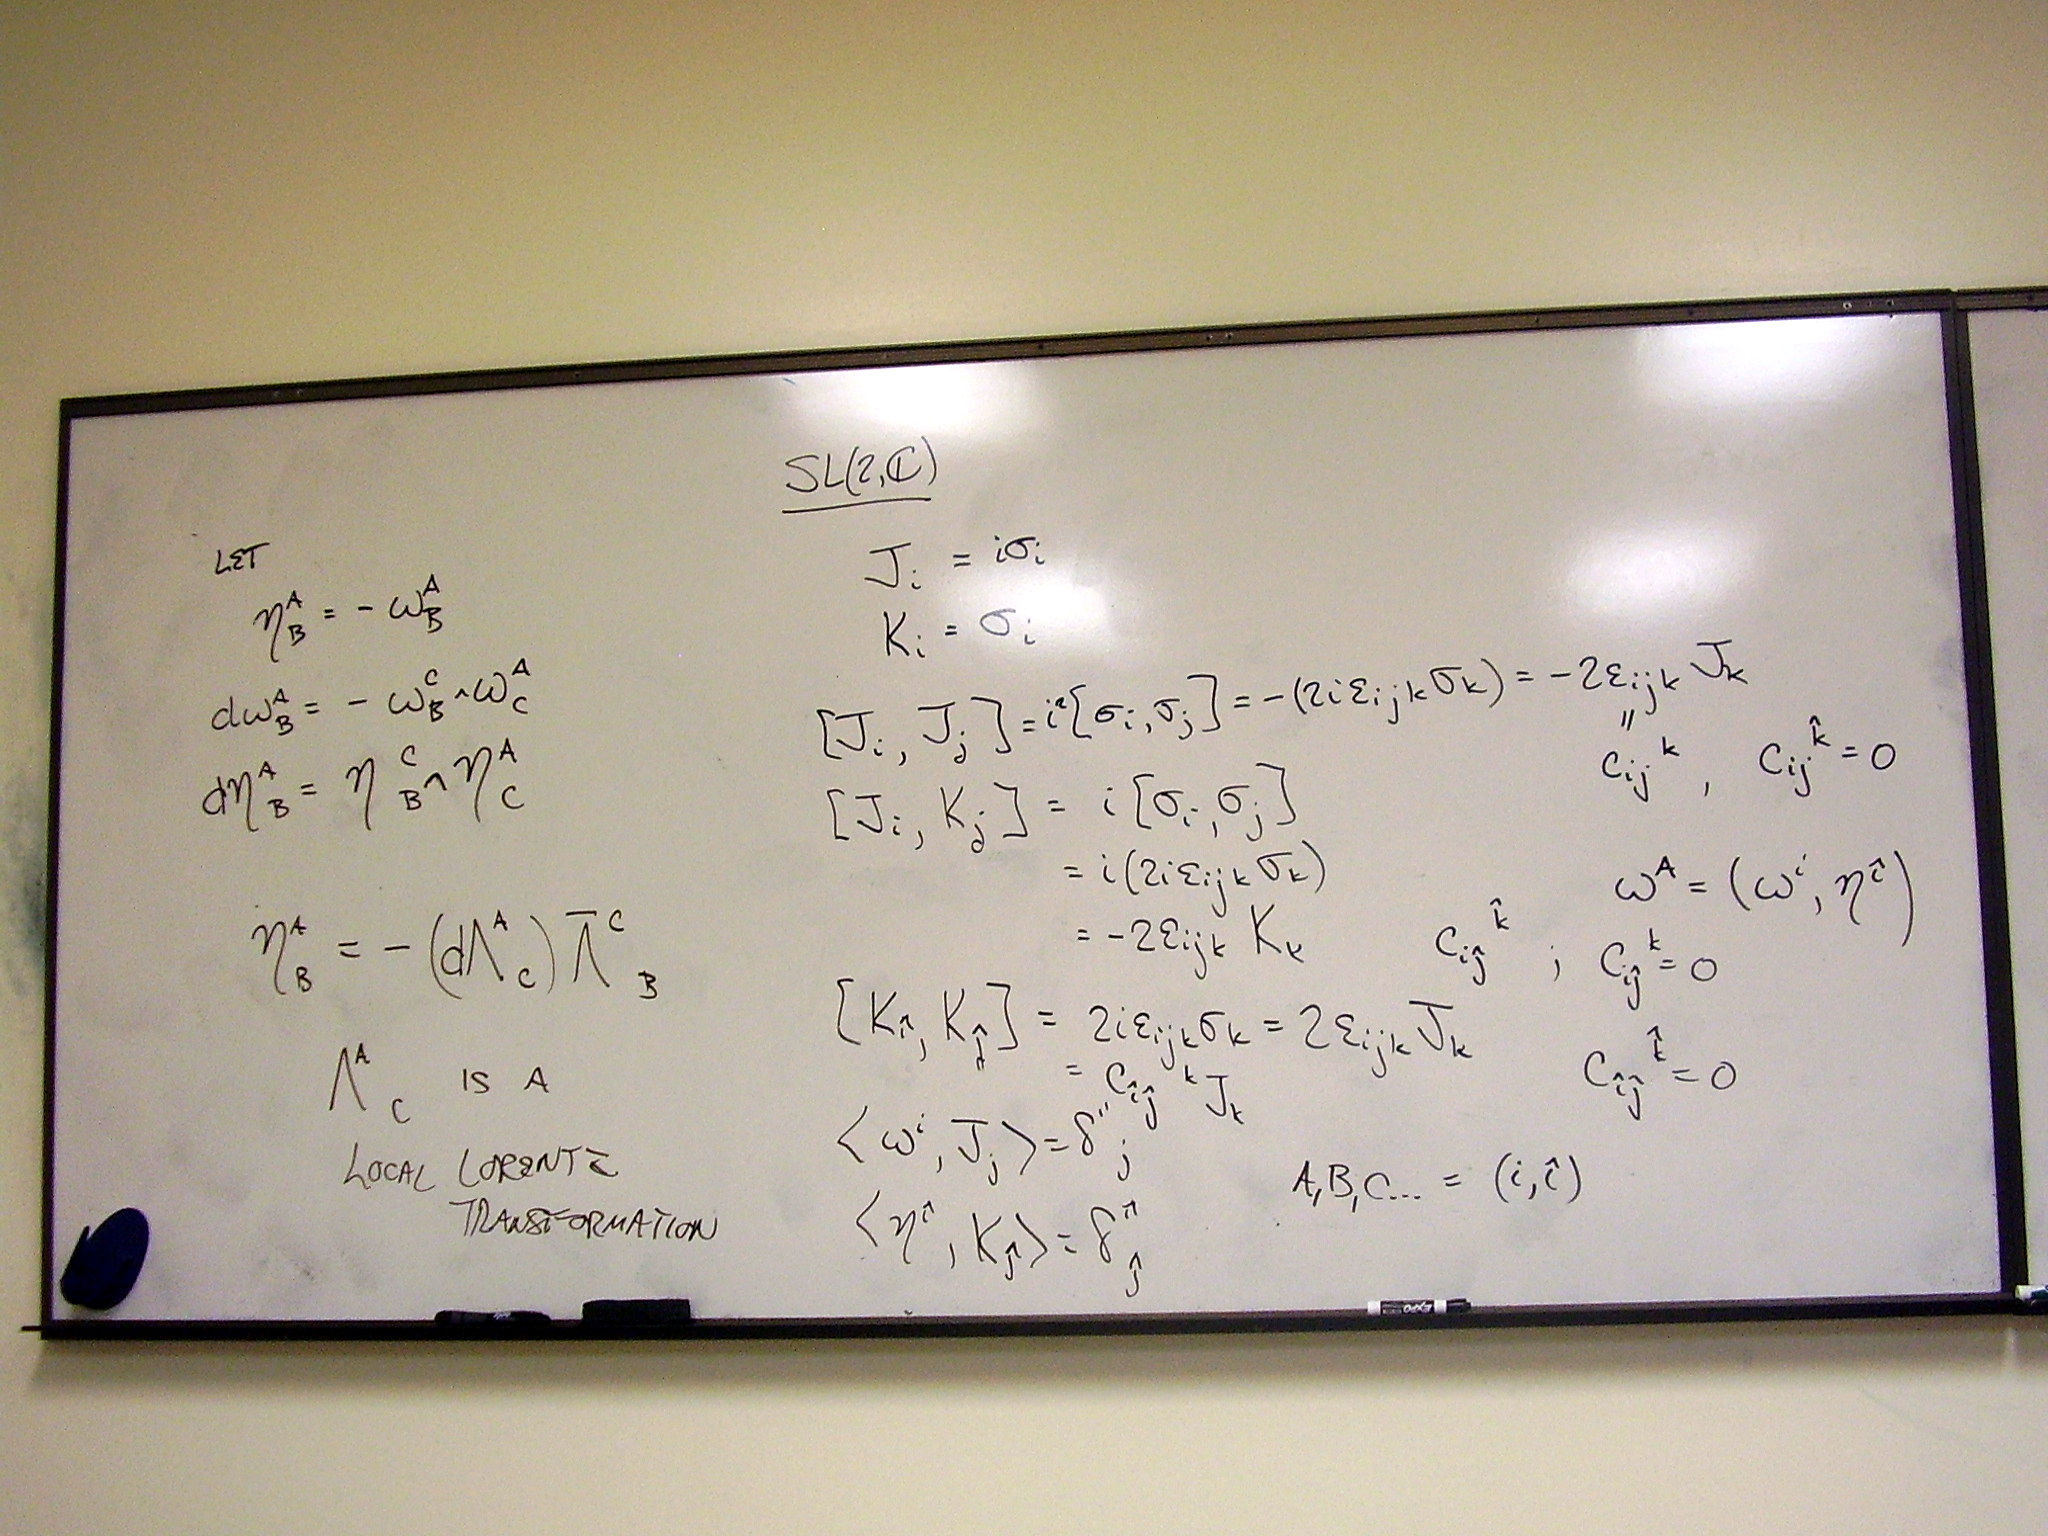 SL(2,ℂ)
LET
η^A_B = - ω^A_B
dω^A_B = - ω^C_B ∧ ω^A_C
dη^A_B = η^C_B ∧ η^A_C
η^A_B = -(dΛ^A_C) Λ̄^C_B
Λ^A_C IS A
LOCAL LORENTZ
TRANSFORMATION
J_i = iσ_i
K_i = σ_i
[J_i, J_j] = i²[σ_i, σ_j] = -(2iε_ijk σ_k) = -2ε_ijk J_k
"
C_ij^k , C_ij^k̂ = 0
[J_i, K_j] = i[σ_i, σ_j]
= i(2iε_ijk σ_k)
ω^A = (ω^i, η^î)
= -2ε_ijk K_k C_iĵ^k̂ ; C_iĵ^k = 0
[K_î, K_ĵ] = 2iε_ijk σ_k = 2ε_ijk J_k
= C_îĵ^k J_k C_îĵ^k̂ = 0
⟨ω^i, J_j⟩ = δ^i_j
A,B,C... = (i, î)
⟨η^î, K_ĵ⟩ = δ^î_ĵ
EXPO